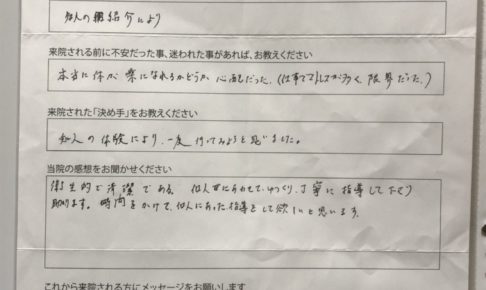 知人の紹介により
来院される前に不安だった事、迷われた事があれば、お教えください
本当に体が楽になれるかどうか心配だった。(仕事でストレスが多く、限界だった。)
来院された「決め手」をお教えください
知人の体験により、一度行ってみようと思いました。
当院の感想をお聞かせください
衛生的で清潔である。個人にあわせて、ゆっくり、丁寧に指導して下さり
助ります。時間をかけて、個人にあった指導をして欲しいと思います。
これから来院される方にメッセージをお願いします